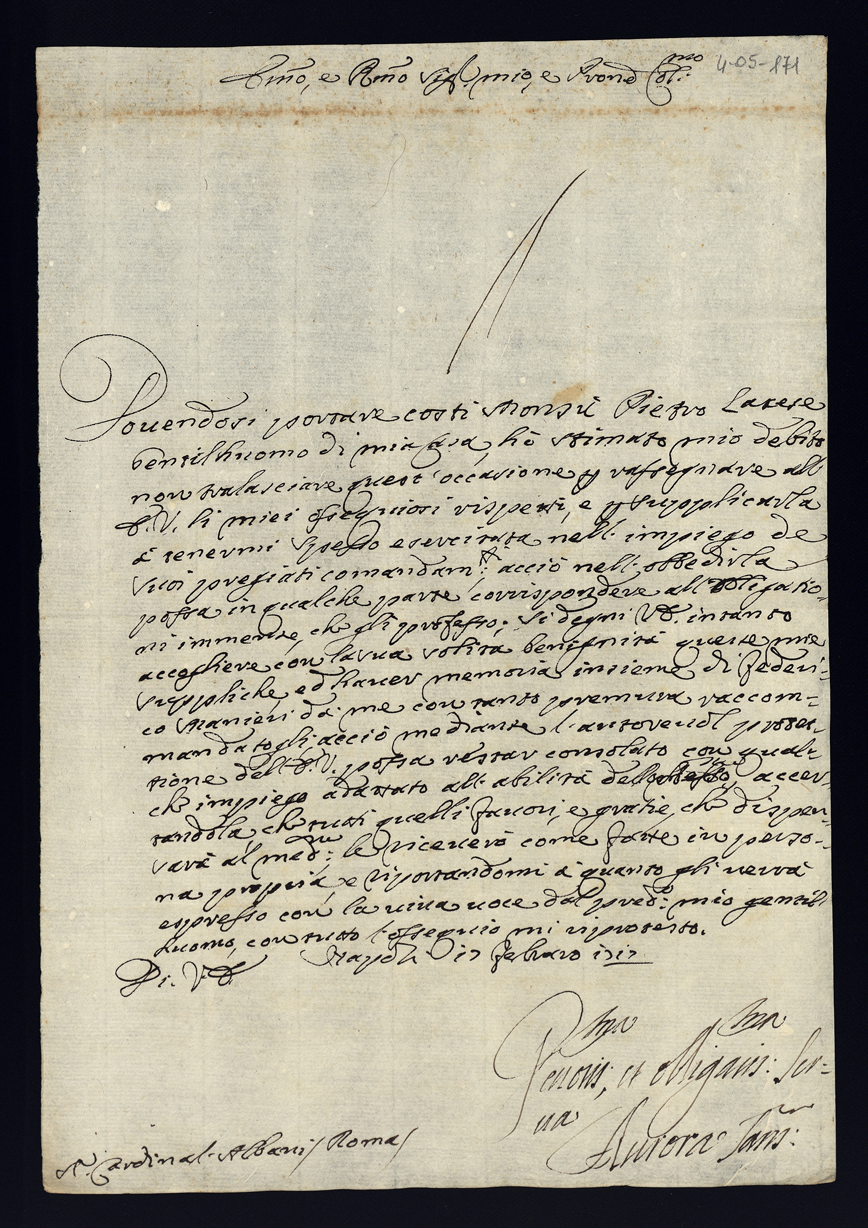 Em̃o, e Rm̃o Sigr. mio, e Prone Col.mo
4-05-171
Douendosi portare costi Monsù Pietro Larese
Gentilhuomo di mia casa, hò stimato mio debito
non tralasciare quest'occasione p rassegnare all'
E.V. li miei osequiosi rispetti, e p supplicarla
à tenermi spesso esercitata nell'impiego de
suoi pregiati comandam.ti acciò nell'obbedirla
possa in qualche parte corrispondere all'obligatio-
ni immense, che gli professo; si degni V.E. intanto
accogliere con la sua solita benignità queste mie
suppliche, ed hauer memoria insieme di Federi-
co Ranieri da me con tanta premura raccom-
mandatogli, acciò mediante l'autoreuol protet-
tione dell'E.V. possa restar consolato con qual-
che impiego adattato all'abilità dello stesso, accer-
tandola, che tutti quelli fauori, e gratie, che dispen-
sarà al med.mo le riceuerò come fatte in perso-
na propria, e riportandomi à quanto gli uerrà
espresso con la uiua uoce dal pred.o mio gentil-
huomo, con tutto l'ossequio mi riprotesto.
Napoli 17 Febraro 1717
Di V.E.
Deuotis.ma, et obligatis.ma Ser-
ua
Aurora Sans.
Sr. Cardinal. Albani / Roma /